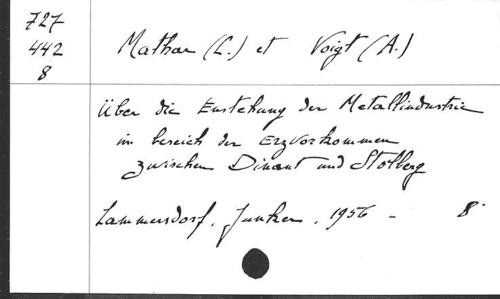 727
442
8
Mathar (L.) et Voigt (A.)
Über die Enstehung der Metallindustrie
im bereich der Erzvorkommen
zwischen Dinant und Stolberg
Lammersdorf, Junker, 1956 - 8°